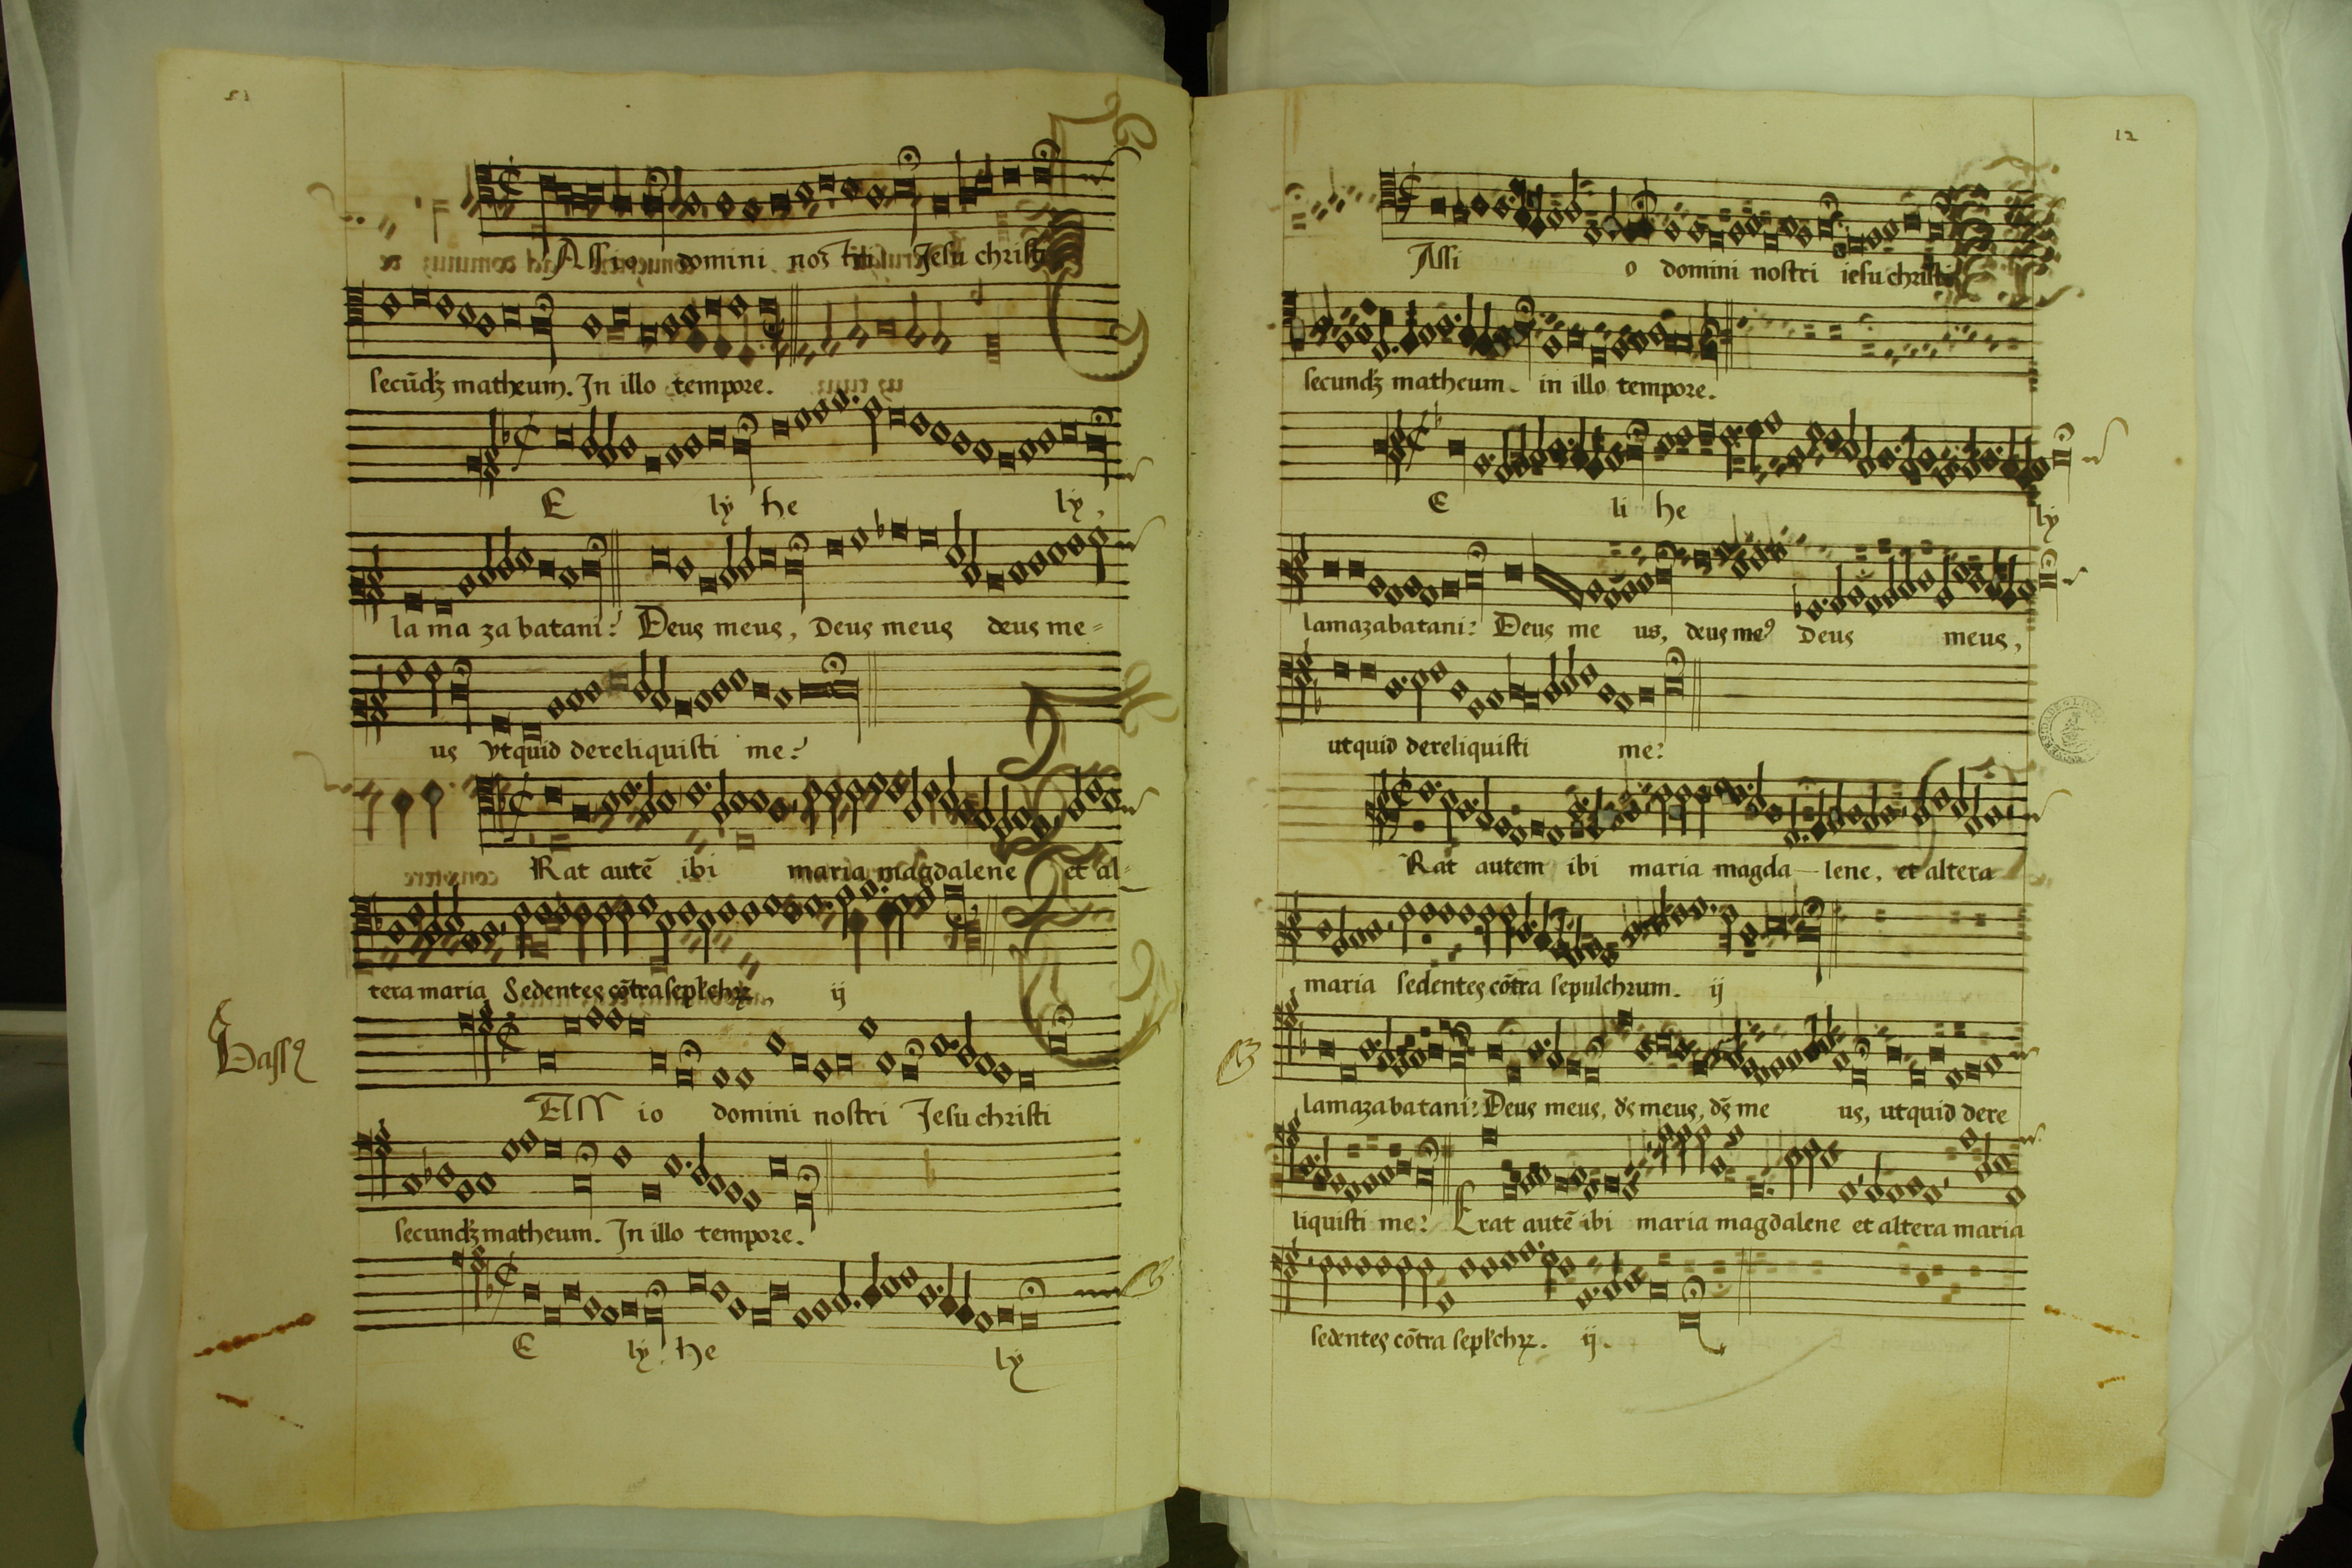 Assio domini nostri Jesu christi
secūdꝫ matheum. In illo tempore.
E ly he ly,
la ma zabatani? Deus meus, Deus meus deus me=
us vtquid dereliquisti me?
Rat autē ibi maria magdalene et al-
tera maria Sedentes cōtra seplchrꝝ, ij
Bassꝰ
Assio domini nostri Jesu christi
secundꝫ matheum. In illo tempore.
E ly. he ly
12
Assi o domini nostri iesu christi
secundꝫ matheum. in illo tempore.
E li he ly
lamazabatani? Deus me us, deus meꝰ Deus meus,
utquid dereliquisti me?
Rat autem ibi maria magda-lene, et altera
maria sedentes cōtra sepulchrum. ij
lamazabatani? Deus meus, ds̄ meus, ds̄ me us, utquid dere
liquisti me? Erat autē ibi maria magdalene et altera maria
sedentes cōtra seplchrꝝ. ij.